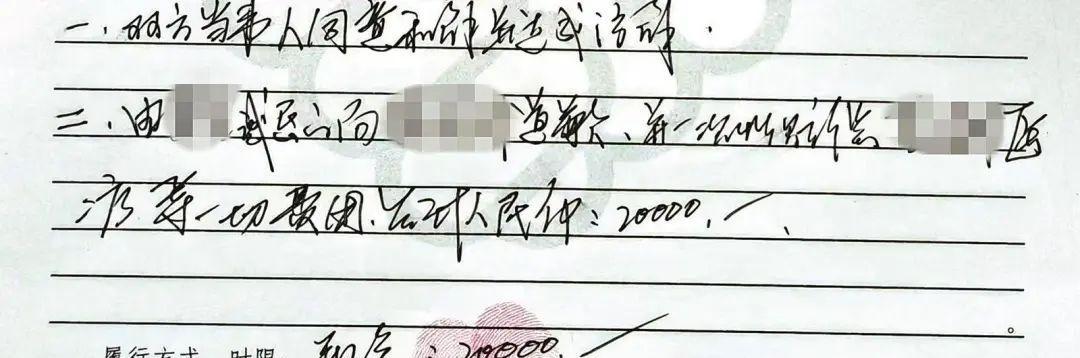 一、双方当事人同意和解并达成谅解.
二、由诚恳向道歉、并一次性赔偿医
疗等一切费用.合计人民币：20000.
履行方式、时限：现金：20000.